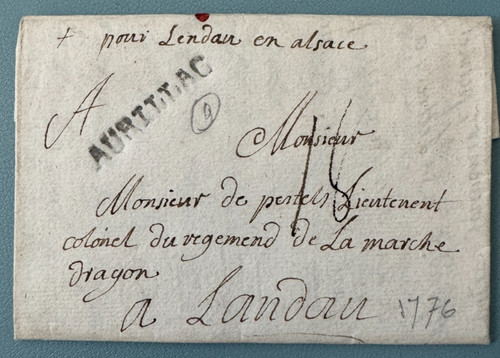 + pour Lendau en alsace
A
AURILLAC
9
Monsieur
18
Monsieur de pestels Lieutenent
colonel du regemend de La marche
dragon
a Landau
1776